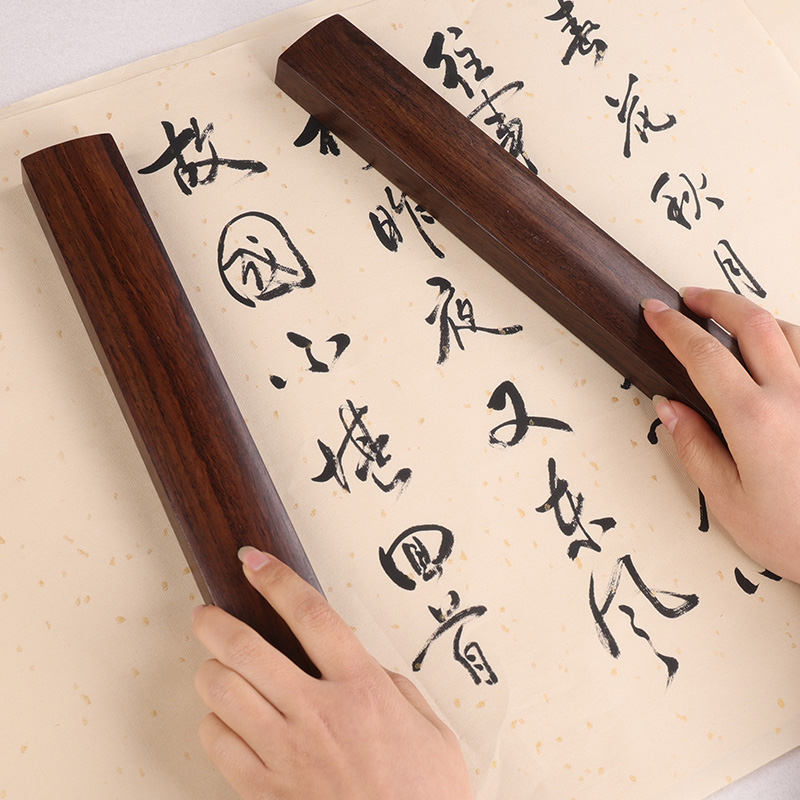 春花秋月
往事
昨夜又东风
故國不堪回首